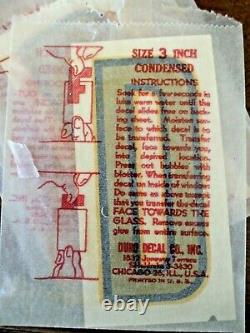 SIZE 3 INCH
CONDENSED
INSTRUCTIONS
Soak for a few seconds in
luke warm water until the
decal slides free on back-
ing sheet. Moisten sur-
face to which decal is to
be transferred. Transfer
decal, face toward you
into desired location.
Press out bubbles with
blotter. When transferring
decal on inside of windows
Do same as above to
that you transfer the decal
FACE TOWARDS THE
GLASS. Remove excess
glue from entire surface.
DURO DECAL CO., INC.
1832 Juneway Terrace
3-3430
CHICAGO 26, ILL., U.S.A.
PRINTED IN U. S. A.